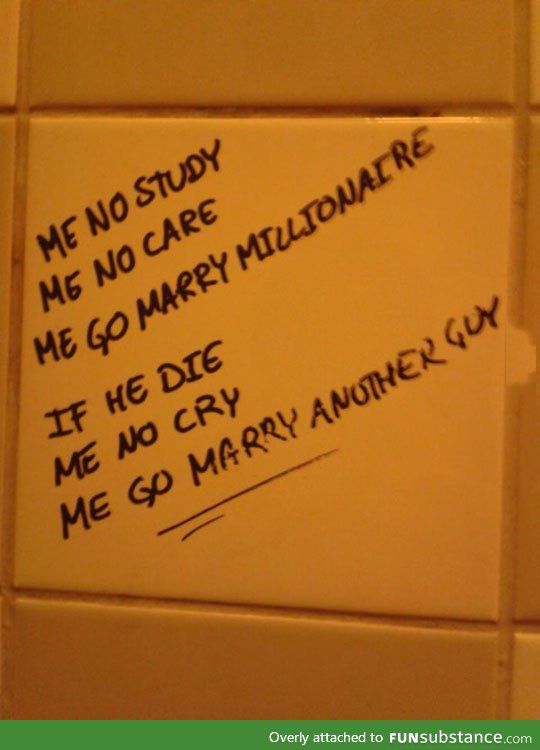 ME NO STUDY
ME NO CARE
ME GO MARRY MILLIONAIRE
IF HE DIE
ME NO CRY
ME GO MARRY ANOTHER GUY
Overly attached to FUNsubstance.com